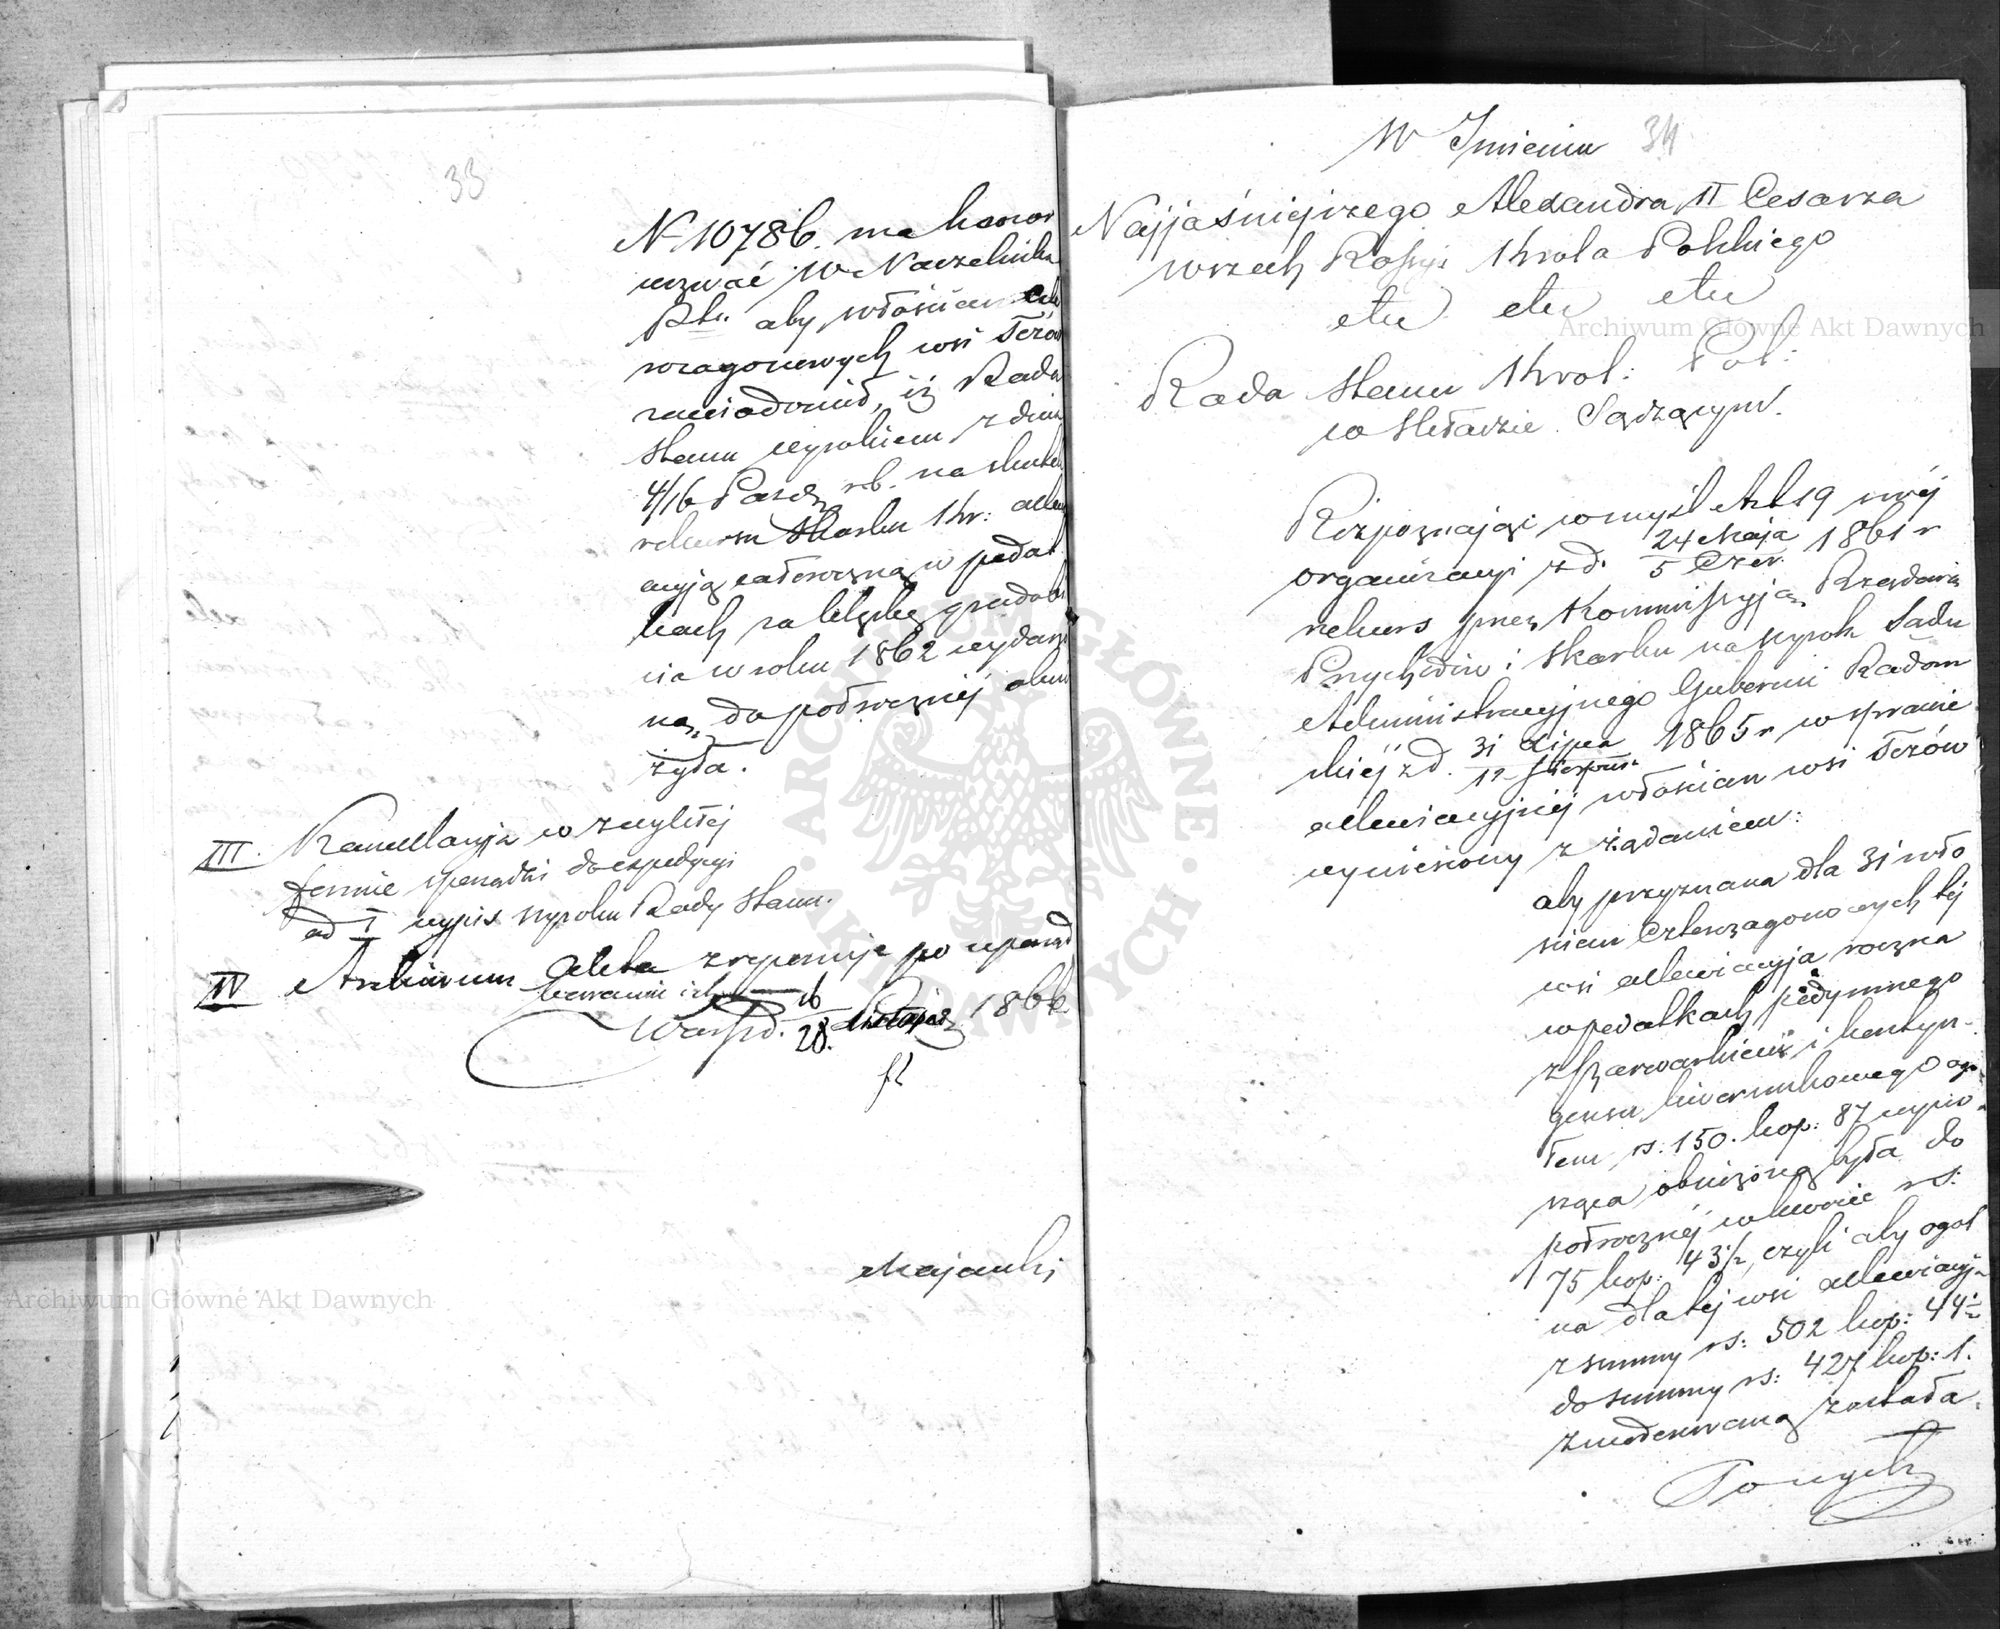 33
N. 10786. ma honor
wezwać W Naczelnika
Ptu aby włościan
wzagonowych wsi Tczów
zawiadomił, iż Rada
Stanu wyrokiem z dnia
4/16 Paźdz rb. na skutek
rekursu Skarbu Kr: allew
acyją całoroczną w podat
kach za klęskę gradobi
cia w roku 1862 wydarzo
ną, do półrocznej obni
żyła.
III. Kancellaryja w zwykłej
formie sporządzi do expedycyi
ad I wypis wyroku Rady Stanu.
IV Archiwum Akta zreponuje po uporząd
kowaniu ich
Warsz d. 16/28 1866.
Majewski
34
W Imieniu
Najjaśniejszego Alexandra II Cesarza
wszech Rossyi Króla Polskiego
etc etc etc
Rada Stanu Król: Pol:
w Składzie Sądzącym.
Rozpoznając w myśl Art 19 swej
organizacyi z d. 24 Maja/5 Czer. 1861 r
rekurs przez Kommissyją Rządową
Przychodów i Skarbu na wyrok Sądu
Administracyjnego Gubernii Radom
skiej z d. 31 Lipca/12 Sierpnia 1865 r w sprawie
allewiacyjnej włościan wsi Tczów
wyniesiony z żądaniem:
aby przyznana dla 31 wło
ścian czterozagonowych tej
wsi allewiacyja roczna
w podatkach podymnego
z szarwarkiem i kontyn-
gensu liwerunkowego ogó
łem rs: 150. kop: 87 wyno
sząca obniżoną była do
półrocznej w kwocie rs:
75 kop: 43½, czyli aby ogól
na dla tej wsi allewiacyja
z summy rs: 502 kop: 44½
do summy rs: 427 kop: 1.
zmoderowaną została.
Archiwum Główne Akt Dawnych
Archiwum Główne Akt Dawnych
ARCHIWUM GŁÓWNE AKT DAWNYCH